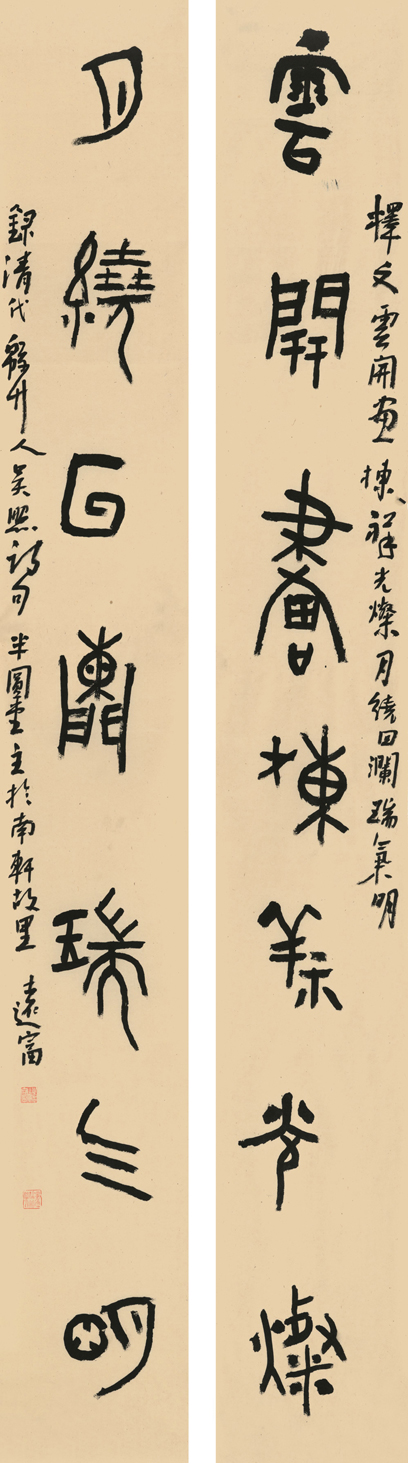 釋文雲開画棟祥光燦月繞回瀾瑞氣明
雲開畫棟祥光燦
月繞回瀾瑞氣明
録清代緜竹人吳照詩句半圓堂主於南軒故里遠富